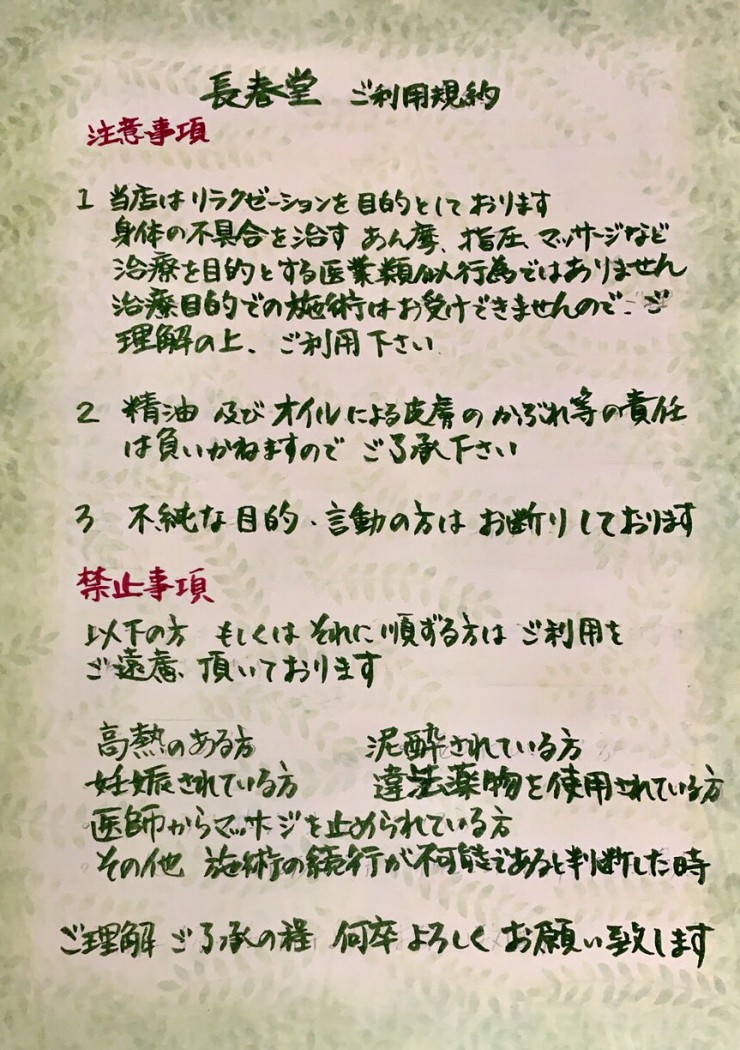 長春堂 ご利用規約
注意事項
1 当店はリラクゼーションを目的としております
身体の不具合を治す あん摩、指圧、マッサージなど
治療を目的とする医業類似行為ではありません
治療目的での施術はお受けできませんので、ご
理解の上、ご利用下さい
2 精油 及び オイルによる皮膚の かぶれ等の責任
は負いかねますので ご了承下さい
3 不純な目的・言動の方は お断りしております
禁止事項
以下の方 もしくは それに順ずる方は ご利用を
ご遠慮、頂いております
高熱のある方 泥酔されている方
妊娠されている方 違法薬物を使用されている方
医師からマッサジを止められている方
その他 施術の続行が不可能であると判断した時
ご理解 ご了承の程 何卒よろしく お願い致します